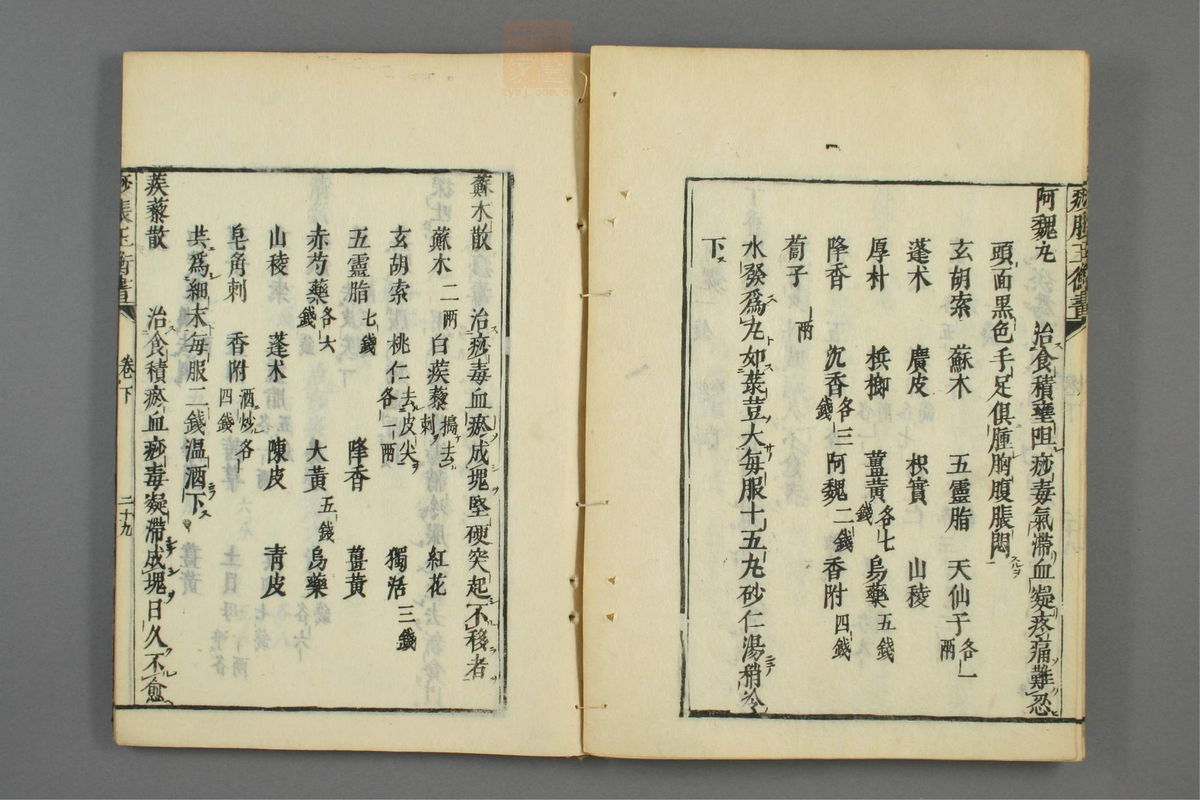 痧脹玉衡書
阿魏丸　治食積壅阻痧毒氣滯血凝疼痛難忍
頭面黑色手足俱腫胸腹脹悶
玄胡索　蘇木　五靈脂　天仙子各一兩
蓬术　廣皮　枳實　山稜
厚朴　梹榔　薑黃各七錢　烏藥五錢
降香　沉香各三錢　阿魏二錢　香附四錢
蔔子一兩
水發爲丸如菉荳大每服十五丸砂仁湯稍冷
下
蘇木散　治痧毒血瘀成塊堅硬突起不移者
蘇木二兩　白蒺藜搗去刺　紅花
玄胡索　桃仁去皮尖各一兩　獨活三錢
五靈脂七錢　降香　薑黃
赤芍藥各六錢　大黃五錢　烏藥
山稜　蓬术　陳皮　青皮
皂角刺　香附酒炒各四錢
共爲細末每服二錢温酒下
蒺藜散　治食積瘀血痧毒凝滯成塊日久不愈
痧脹玉衡書　卷下　二十九